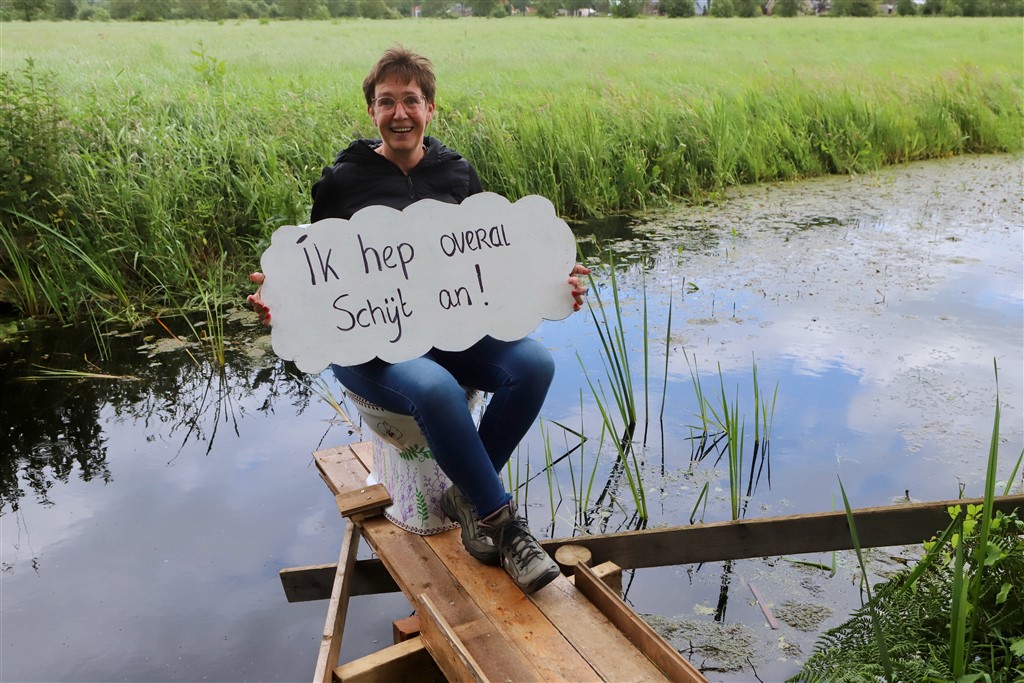 Ík hep overal
Schijt an!